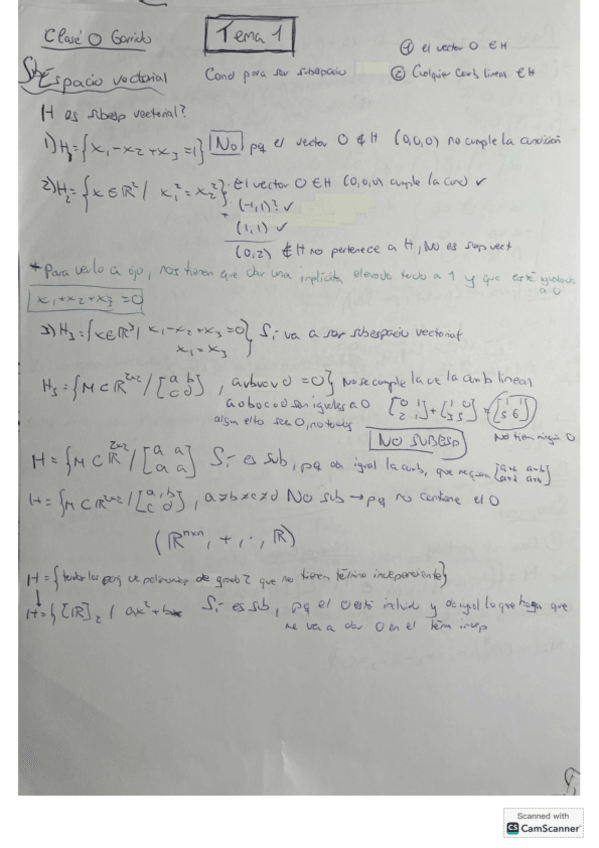 Clase 0 Garrido
Tema 1
① el vector 0 ∈ H
Subespacio vectorial
Cond para ser subespacio
② Cualquier comb lineal ∈ H
H es subesp vectorial?
1) H₁ = {x₁ - x₂ + x₃ = 1} No pq el vector 0 ∉ H (0,0,0) no cumple la condición
2) H₂ = {x ∈ ℝ² / x₁² = x₂²} · El vector 0 ∈ H (0,0,0) cumple la cond ✓
(-1,1)? ✓
+
(1,1) ✓
(0,2) ∉ H no pertenece a H, No es
* Para verlo a ojo, nos tienen que dar una implícita elevado todo a 1 y que esté igualado a 0
x₁ + x₂ + x₃ = 0
3) H₃ = {x ∈ ℝ³ / x₁ - x₂ + x₃ = 0
x₁ = x₃} Sí va a ser subespacio vectorial
H₅ = {M ⊂ ℝ²ˣ² / [a b; c d], a∨b∨c∨d = 0} No se cumple la de la comb lineal
a o b o c o d son iguales a 0
[0 1; 2 1] + [1 0; 3 5] = [1 1; 5 6]
algún elto sea 0, no todos
NO SUBESP
No tiene ningún 0
H = {M ⊂ ℝ²ˣ² / [a a; a a] Sí es sub, pq da igual la comb, que
H = {M ⊂ ℝ²ˣ² / [a, b; c d], a≠b≠c≠d No sub → pq no contiene el 0
(ℝⁿˣⁿ, +, ·, ℝ)
H = {todos los de polinomios de grado 2 que no tienen término independiente}
↓
H = {[ℝ]₂ / ax² + bx Sí es sub, pq el 0 está incluido y da igual lo que haga que
me va a dar 0 en el térm indep
Scanned with
CS CamScanner